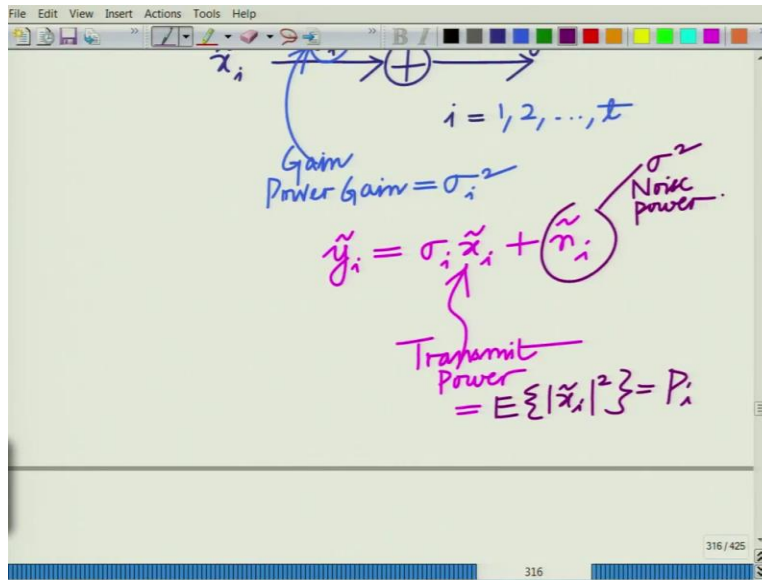 File Edit View Insert Actions Tools Help
B I
x̃ᵢ
i = 1, 2, ..., t
Gain
Power Gain = σᵢ²
σ²
Noise
power.
ỹᵢ = σᵢ x̃ᵢ + ñᵢ
Transmit
Power
= E{|x̃ᵢ|²} = Pᵢ
316/425
316